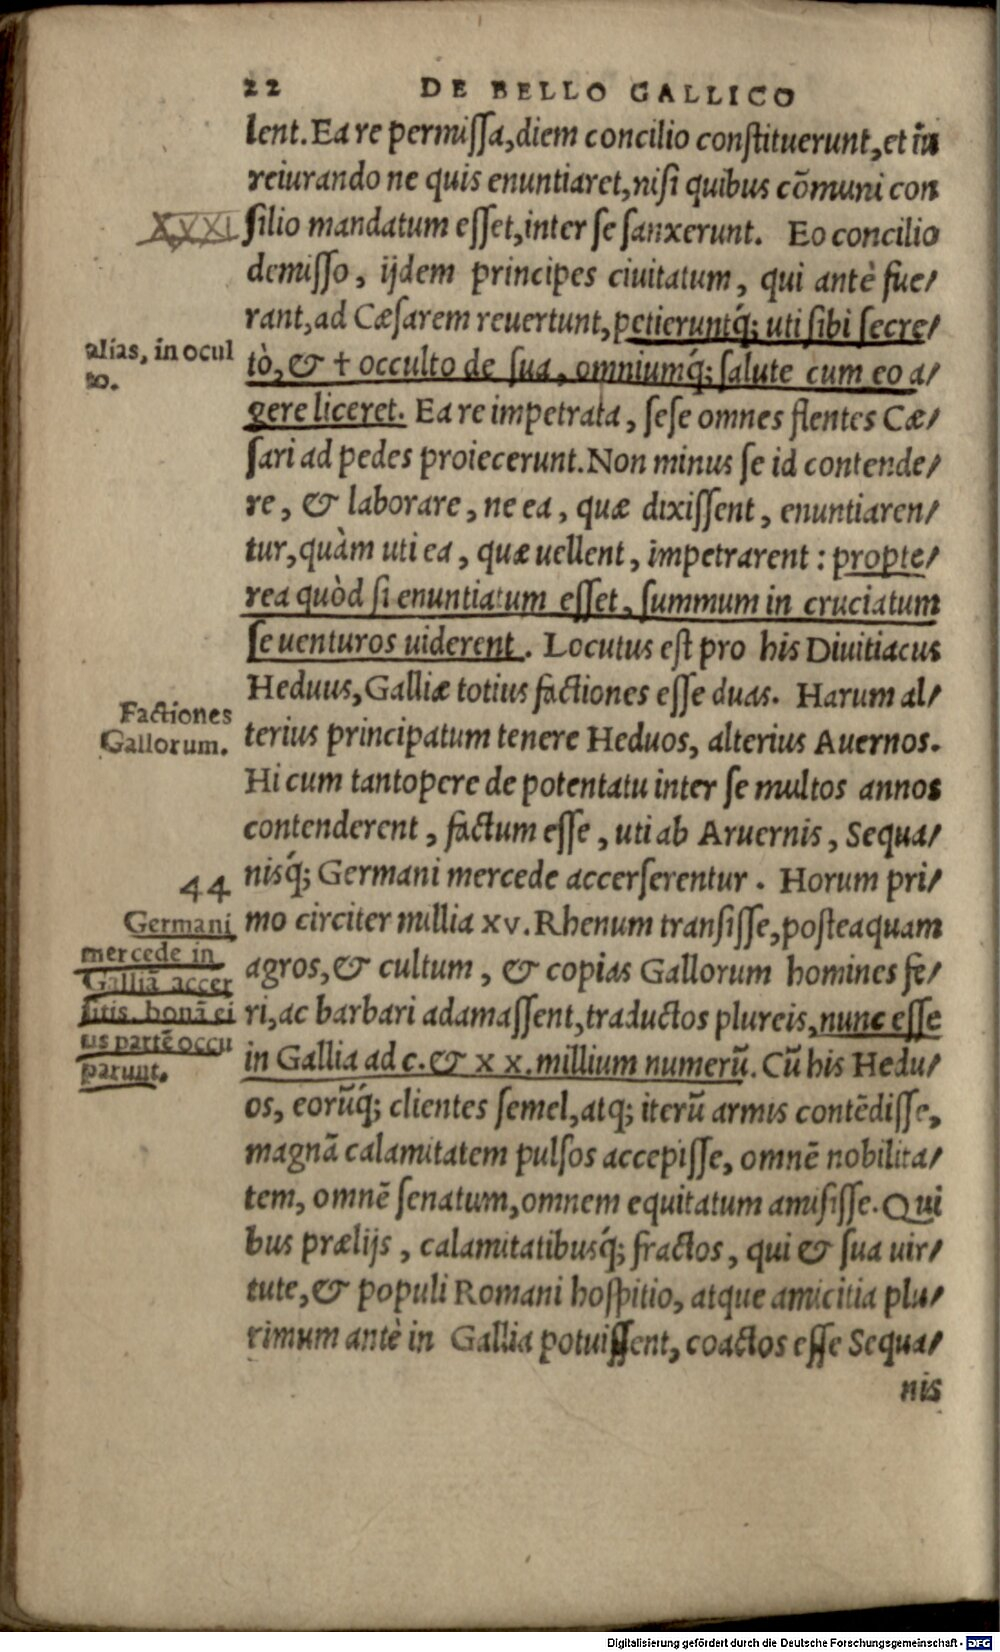 22 DE BELLO GALLICO
lent. Ea re permiſſa, diem concilio conſtituerunt, et iu
reiurando ne quis enuntiaret, niſi quibus cōmuni con
XXXI
ſilio mandatum eſſet, inter ſe ſanxerunt. Eo concilio
demiſſo, ijdem principes ciuitatum, qui antè fue/
rant, ad Cæſarem reuertunt, petieruntq́; uti ſibi ſecre/
alias, in ocul
to.
tò, & † occulto de ſua, omniumq́; ſalute cum eo a/
gere liceret. Ea re impetrata, ſeſe omnes flentes Cæ/
ſari ad pedes proiecerunt. Non minus ſe id contende/
re, & laborare, ne ea, quæ dixiſſent, enuntiaren/
tur, quàm uti ea, quæ uellent, impetrarent: propte/
rea quòd ſi enuntiatum eſſet, ſummum in cruciatum
ſe uenturos uiderent. Locutus eſt pro his Diuitiacus
Heduus, Galliæ totius factiones eſſe duas. Harum al/
Factiones
Gallorum.
terius principatum tenere Heduos, alterius Auernos.
Hi cum tantopere de potentatu inter ſe multos annos
contenderent, factum eſſe, uti ab Aruernis, Sequa/
nisq́; Germani mercede accerſerentur. Horum pri/
44
Germani
mercede in
Galliā accer
ſitis, bonā ei
us partē occu
parunt.
mo circiter millia xv. Rhenum tranſiſſe, poſteaquam
agros, & cultum, & copias Gallorum homines fe/
ri, ac barbari adamaſſent, traductos plureis, nunc eſſe
in Gallia ad c. & x x. millium numerū. Cū his Hedu/
os, eorūq́; clientes ſemel, atq; iterū armis contēdiſſe,
magnā calamitatem pulſos accepiſſe, omnē nobilita/
tem, omnē ſenatum, omnem equitatum amiſiſſe. Qui
bus prælijs, calamitatibusq́; fractos, qui & ſua uir/
tute, & populi Romani hoſpitio, atque amicitia plu/
rimum antè in Gallia potuiſſent, coactos eſſe Sequa/
nis
Digitalisierung gefördert durch die Deutsche Forschungsgemeinschaft - DFG